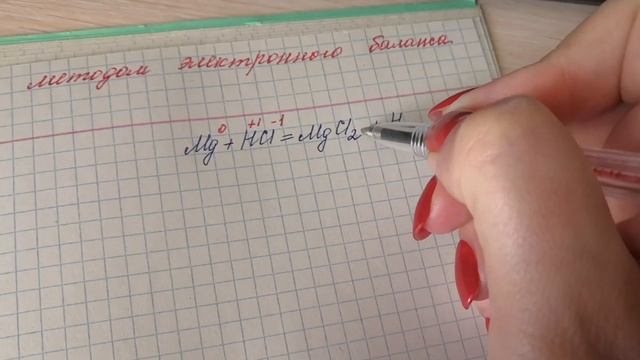 методом электронного баланса
0 +1 -1
Mg + HCl = MgCl2 + H